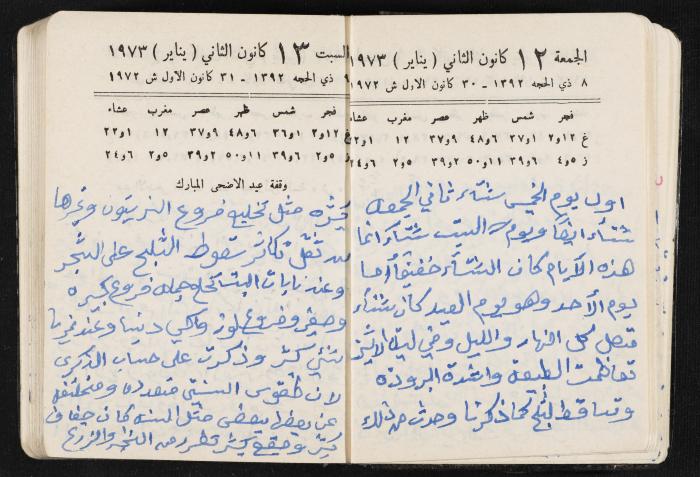 الجمعة ١٢ كانون الثاني ( يناير ) ١٩٧٣
٨ ذي الحجه ١٣٩٢ ـ ٣٠ كانون الاول ش ١٩٧٢
فجر شمس ظهر عصر مغرب عشاء
غ ١٢و٢ ١و٣٧ ٦و٤٨ ٩و٣٧ ١٢ ١و٢٢
ز ٥و٤ ٦و٣٩ ١١و٥٠ ٢و٣٩ ٥و٢ ٦و٢٤
اول يوم الخميس شتاء ثاني الجمعه
شتاء ايضا ويوم السبت شتاء انما
هذه الأيام كان الشتاء خفيفا أما
يوم الأحد وهو يوم العيد كان شتاء
متصل كل النهار والليل وفي ليلة الاثنين
تعاظمت الطبيعة واشتدة البرودة
وتساقط الثلج كما ذكرنا وحدث من ذلك
السبت ١٣ كانون الثاني ( يناير ) ١٩٧٣
٩ ذي الحجه ١٣٩٢ ـ ٣١ كانون الاول ش ١٩٧٢
فجر شمس ظهر عصر مغرب عشاء
غ ١٢و٣ ١و٣٦ ٦و٤٨ ٩و٣٧ ١٢ ١و٢٢
ز ٥و٢ ٦و٣٩ ١١و٥٠ ٢و٣٩ ٥و٢ ٦و٢٤
وقفة عيد الاضحى المبارك
كثيره مثل تخليع فروع الزيتون وغيرها
من ثقل تكاثر سقوط الثلج على الشجر
وعند نايات البتانخل وجمله فروع كبيره
وصغر وفروع لوز وعند غيرنا
شيئ كثير وذكرت على حساب الذكرى
لان طقوس السنين متعدده ومختلفه
عن بعضها بعض مثل السنه كان جفاف
كثير وصقيع كثير وضرر من الشجر والزرع